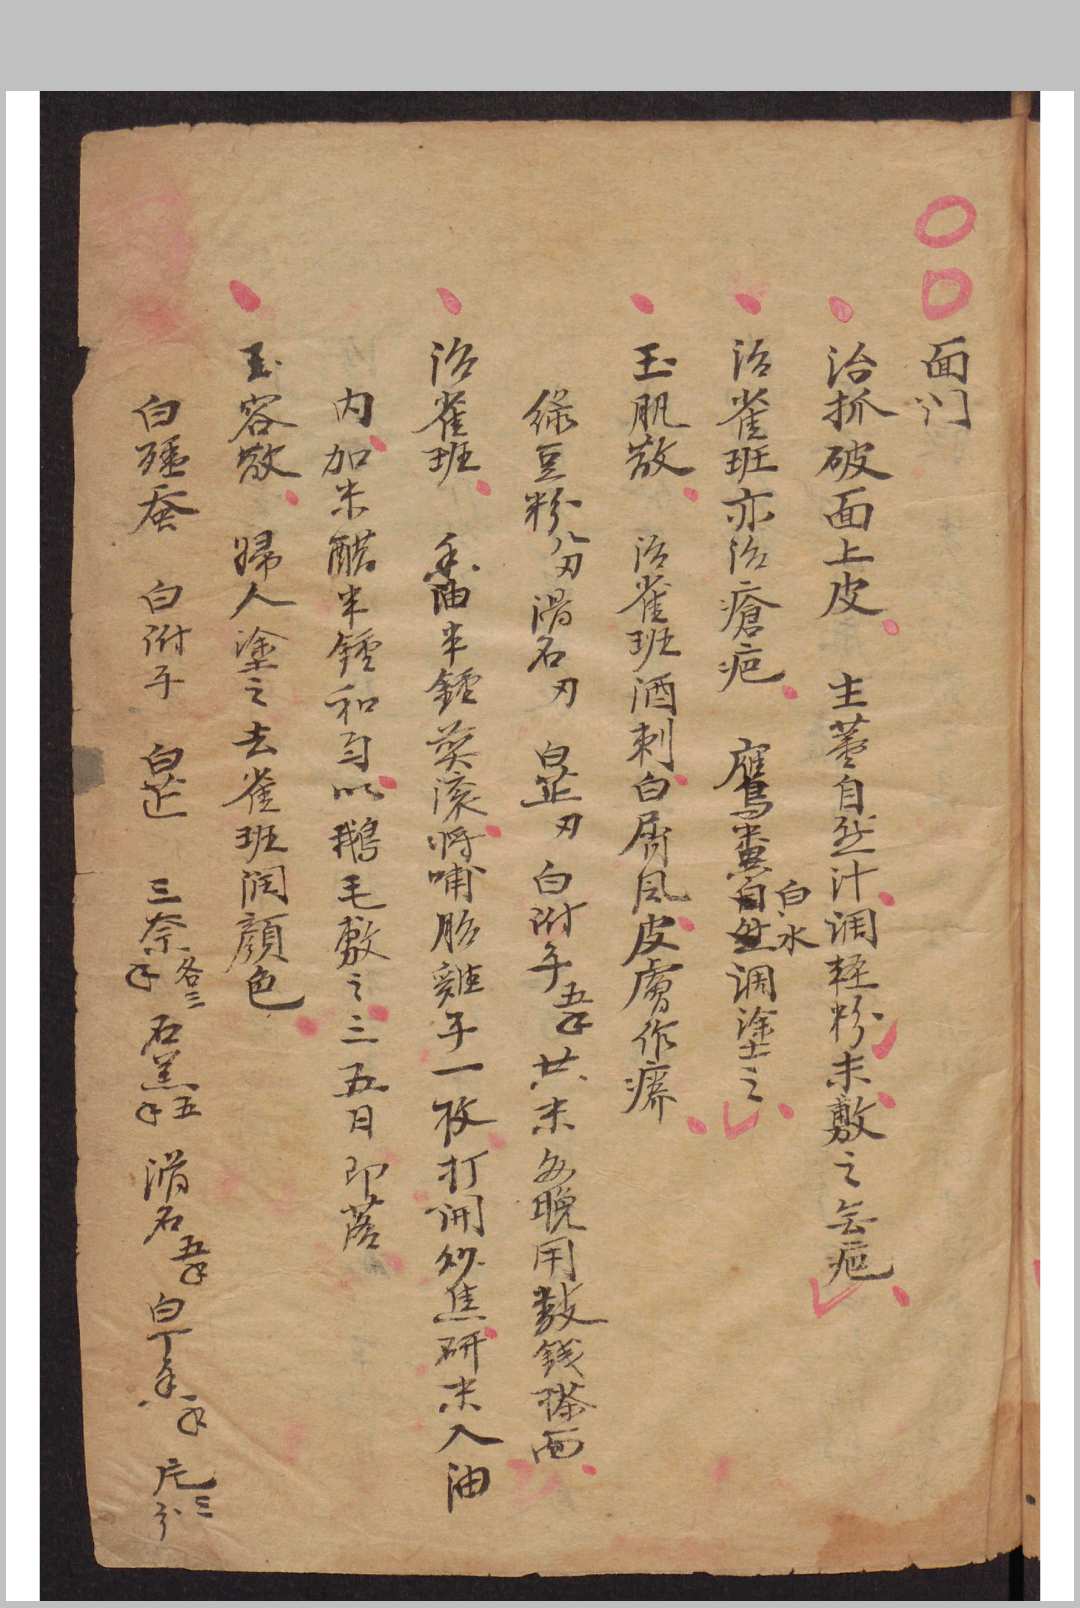 面门
治抓破面上皮 生薑自然汁调轻粉末敷之無疤
治雀班亦治瘡疤 鷹糞白水调塗之
玉肌散 治雀班酒刺白屑風皮膚作癢
绿豆粉八刄滑石刄 白芷刄 白附子五钱共末每晚用数錢搽面
治雀班 香油半鍾煎滚将哺胎雞子一枚打開炒焦研末入油
内加米醋半鍾和匀以鵝毛敷之三五日即落
玉容散 婦人塗之去雀班润颜色
白殭蚕 白附子 白芷 三奈各三钱 石羔五钱 滑石五钱 白丁香一钱 片三分